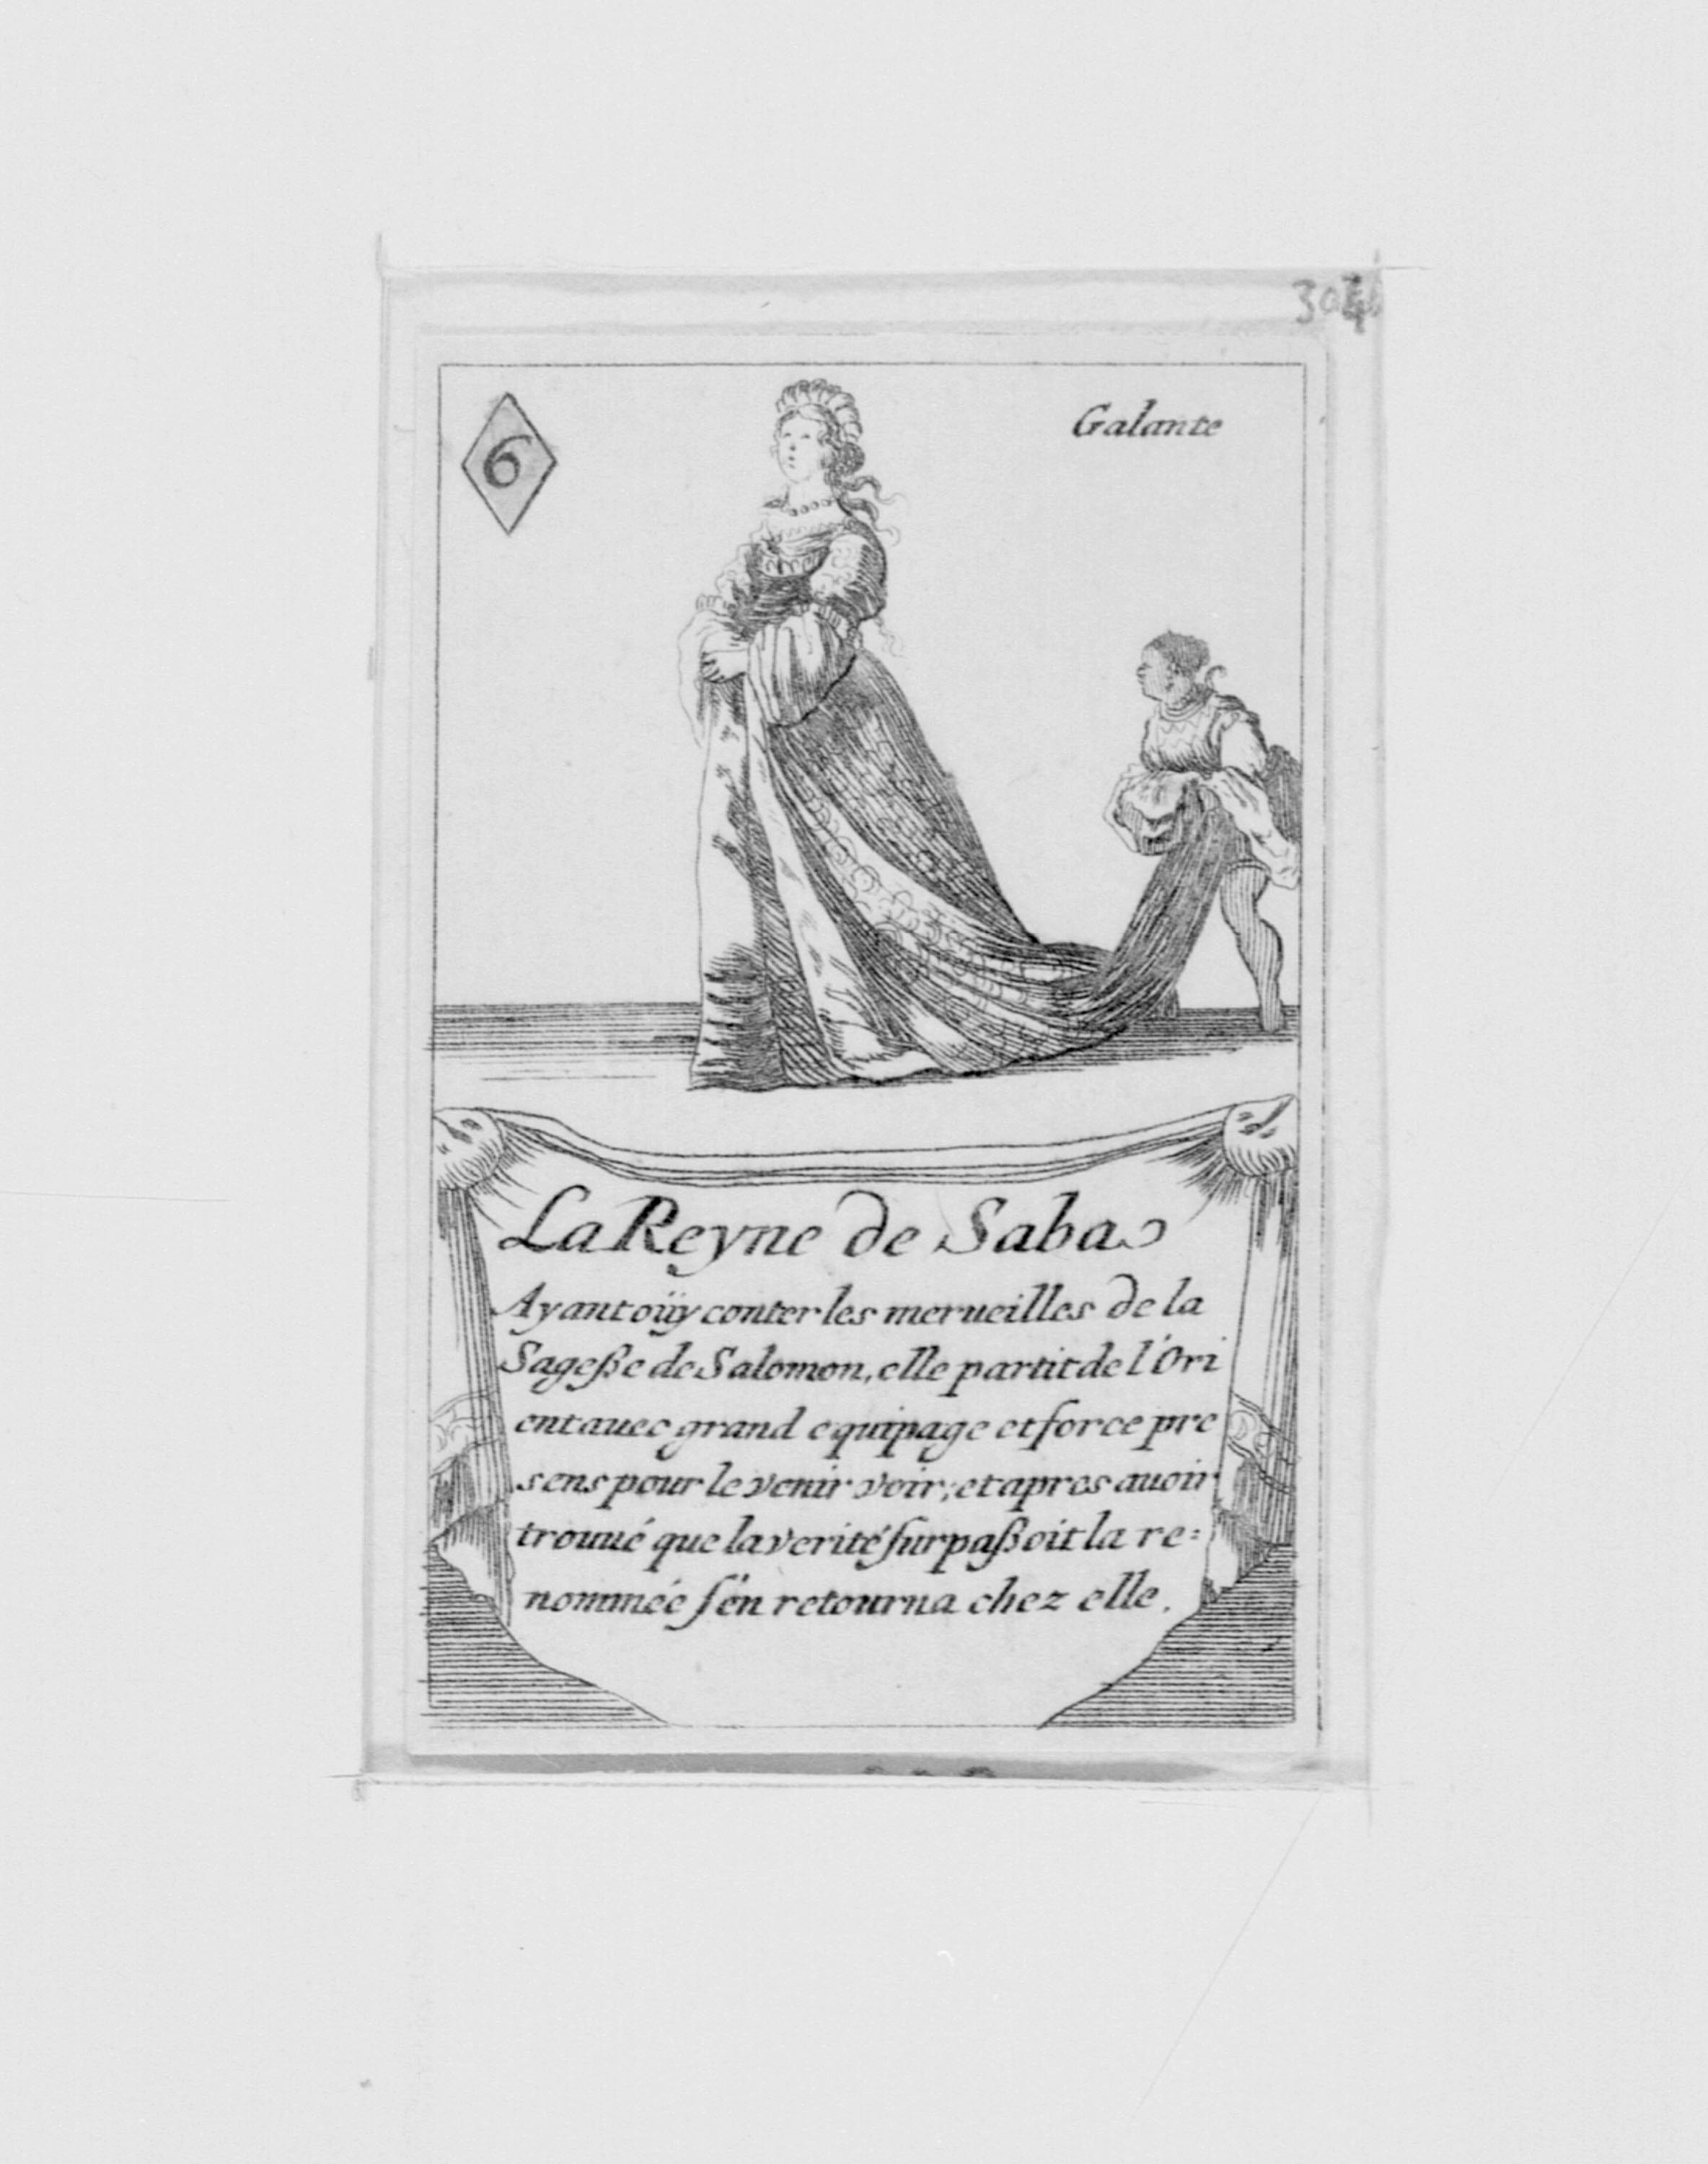 6
Galante
La Reyne de Saba
Ayant oüy conter les merueilles de la
Sageße de Salomon, elle partit de l'Ori
ent auec grand equipage et force pre
sens pour le venir voir; et apres auoir
trouué que la verité ſurpaßoit la re=
nommée ſ'en retourna chez elle.